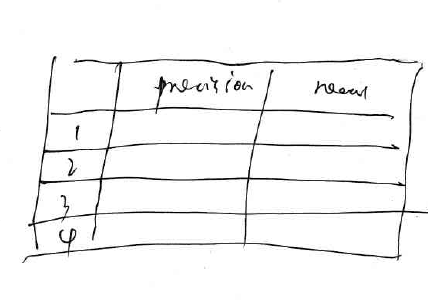 precision recall
1
2
3
4